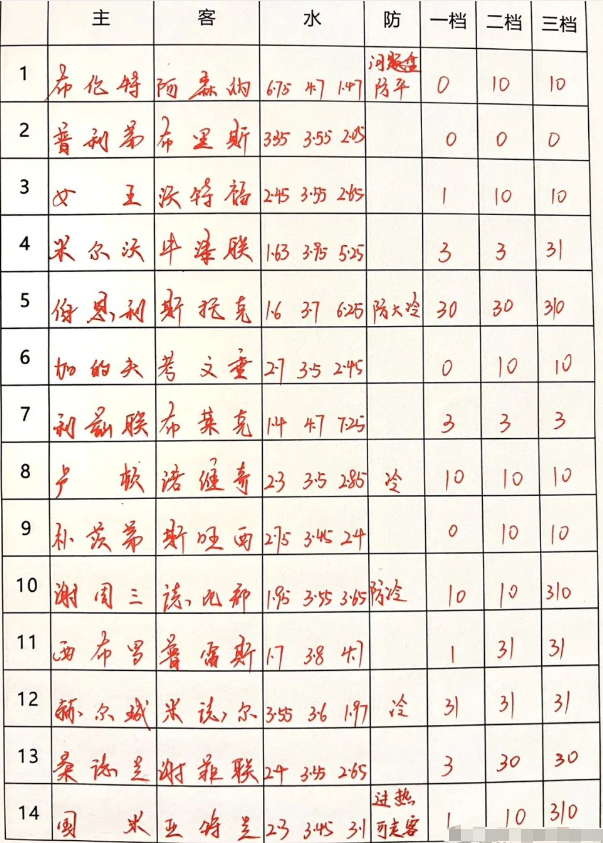 主 客 水 防 一档 二档 三档
1 布伦特 阿森纳 6.75 4.7 1.47 问题盘 防平 0 10 10
2 普利茅 布里斯 3.35 3.55 2.05 0 0 0
3 女王 沃特福 2.45 3.55 2.65 1 10 10
4 米尔沃 牛津联 1.63 3.95 5.25 3 3 31
5 伯恩利 斯托克 1.6 3.7 6.25 防大冷 30 30 310
6 加的夫 考文垂 2.7 3.5 2.45 0 10 10
7 利兹联 布莱克 1.4 4.7 7.25 3 3 3
8 卢顿 诺维奇 2.3 3.5 2.85 冷 10 10 10
9 朴茨茅 斯旺西 2.75 3.45 2.4 0 10 10
10 谢周三 德比郡 1.95 3.55 3.65 防冷 10 10 310
11 西布罗 普雷斯 1.7 3.8 4.7 1 31 31
12 赫尔城 米德尔 3.55 3.6 1.97 冷 31 31 31
13 桑德兰 谢菲联 2.4 3.45 2.65 3 30 30
14 国米 亚特兰 2.3 3.45 3.1 过热 可走客 1 10 310